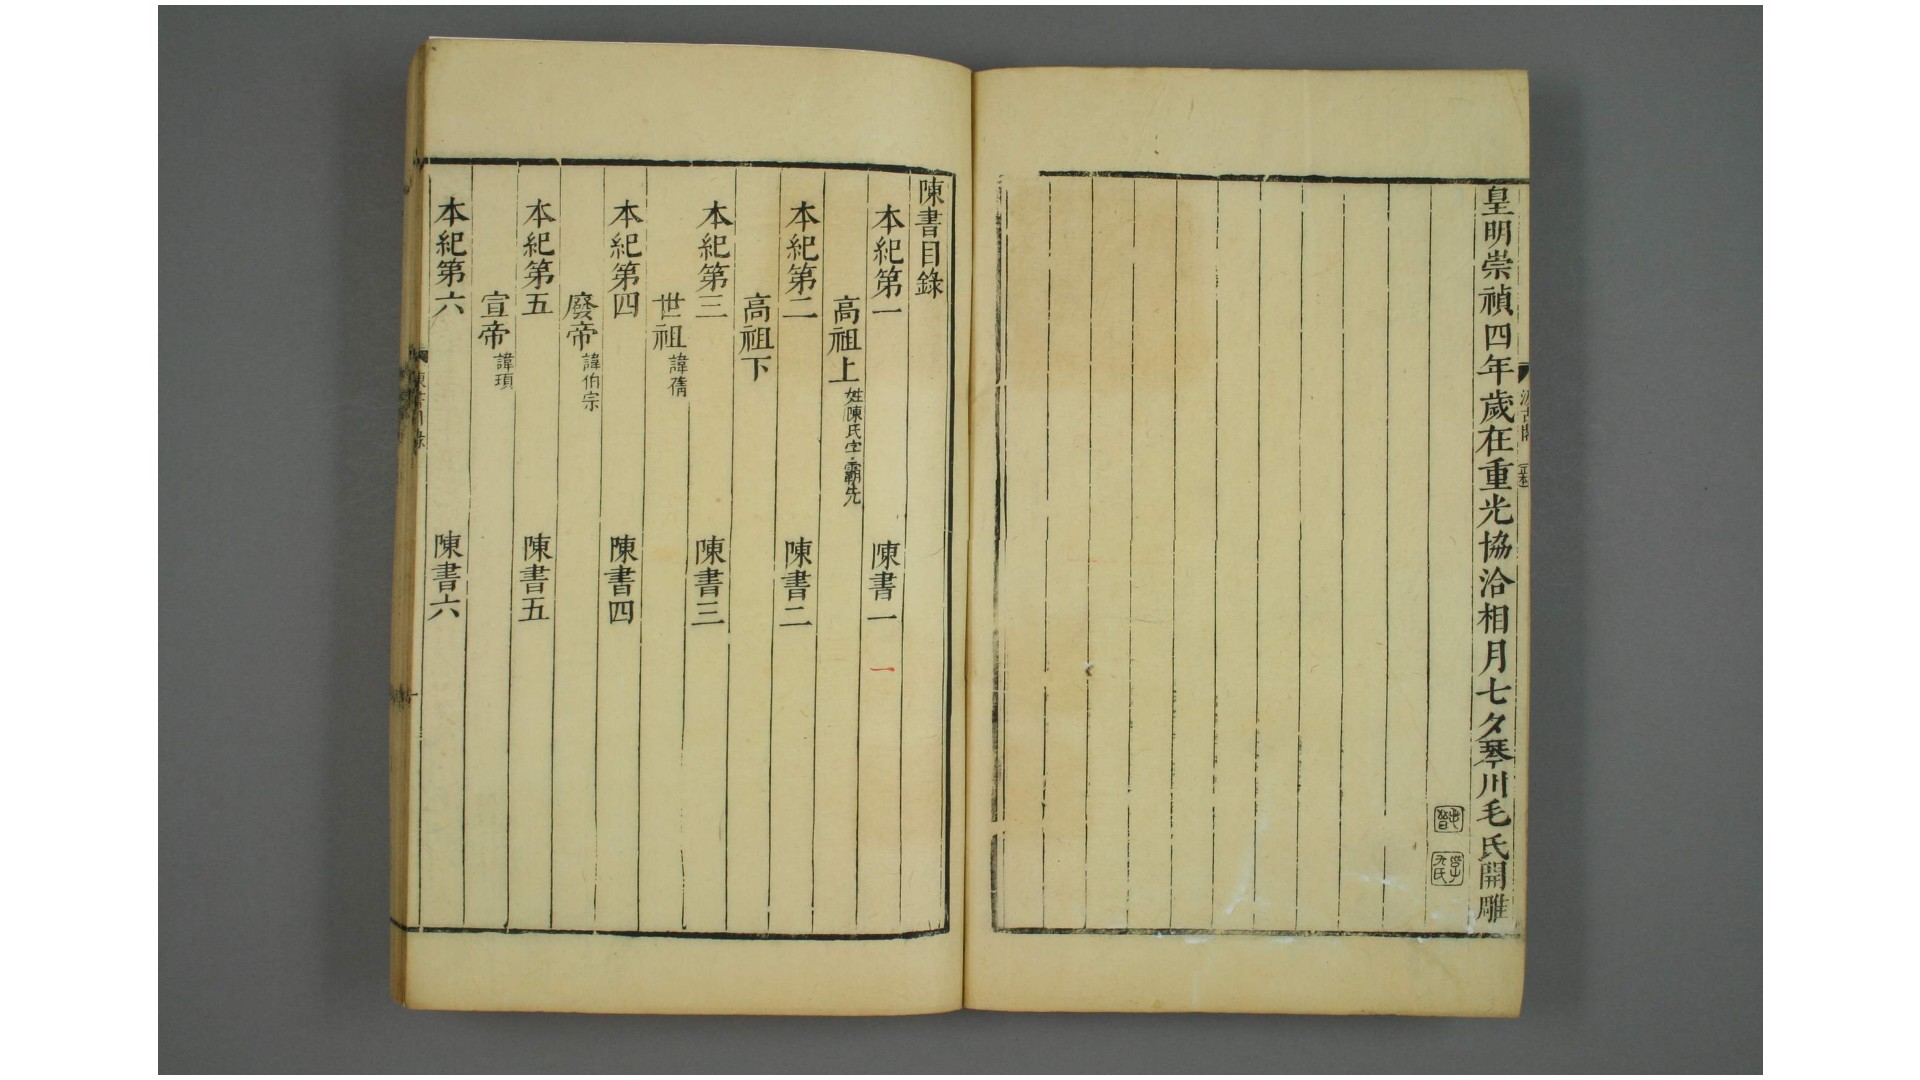 皇明崇禎四年歲在重光協洽相月七夕琴川毛氏開雕
汲古閣
毛晉
陳書目錄
本紀第一 陳書一
一
高祖上 姓陳氏字霸先
本紀第二 陳書二
高祖下
本紀第三 陳書三
世祖 諱蒨
本紀第四 陳書四
廢帝 諱伯宗
本紀第五 陳書五
宣帝 諱頊
本紀第六 陳書六
陳書目錄